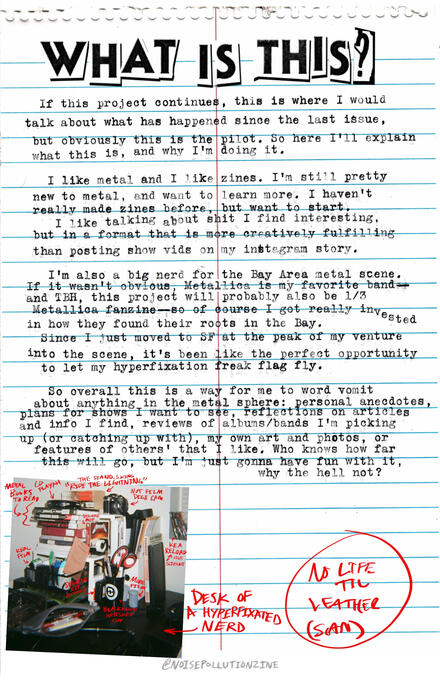 WHAT IS THIS?
If this project continues, this is where I would
talk about what has happened since the last issue,
but obviously this is the pilot. So here I'll explain
what this is, and why I'm doing it.
I like metal and I like zines. I'm still pretty
new to metal, and want to learn more. I haven't
really made zines before, but want to start.
I like talking about shit I find interesting,
but in a format that is more creatively fulfilling
than posting show vids on my instagram story.
I'm also a big nerd for the Bay Area metal scene.
If it wasn't obvious, Metallica is my favorite band—
and TBH, this project will probably also be 1/3
Metallica fanzine—so of course I got really invested
in how they found their roots in the Bay.
Since I just moved to SF at the peak of my venture
into the scene, it's been like the perfect opportunity
to let my hyperfixation freak flag fly.
So overall this is a way for me to word vomit
about anything in the metal sphere: personal anecdotes,
plans for shows I want to see, reflections on articles
and info I find, reviews of albums/bands I'm picking
up (or catching up with), my own art and photos, or
features of others' that I like. Who knows how far
this will go, but I'm just gonna have fun with it,
why the hell not?
METAL
BOOKS
TO READ
CD
PLAYER
"RIDE THE LIGHTNING"
NOT FILM
DIGI CAM
DESK OF
A HYPERFIXATED
NERD
NO LIFE
TIL
LEATHER
(SCAN)
@NOISEPOLLUTIONZINE